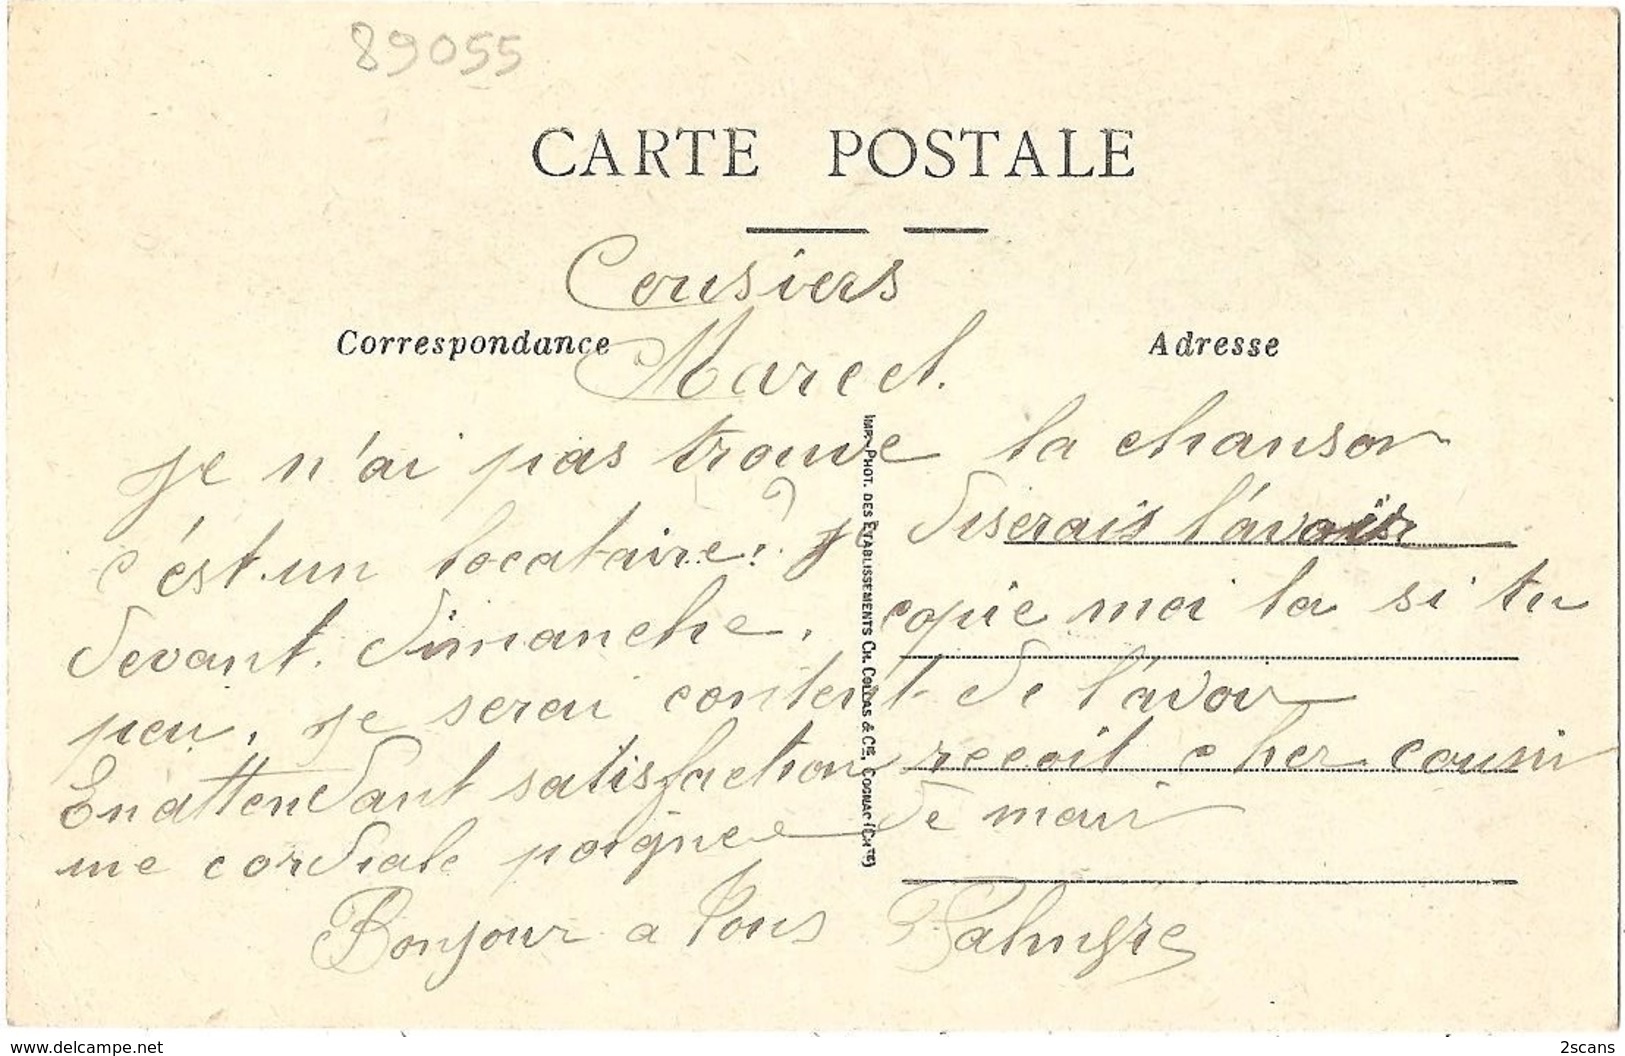 89055
CARTE POSTALE
Cousins
Correspondance
Marcel.
Adresse
Je n'ai pas trouve la chanson
c'est un locataire? Je diserais l'avoir
devant dimanche, copie moi la si tu
peu, je serai content de l'avoir
En attendant satisfaction recoit cher cousin
une cordiale poignee de main
Bonjour a tous Palmyre
IMP.-PHOT. DES ÉTABLISSEMENTS CH. COLLAS & CIE, COGNAC (CHTE)
www.delcampe.net
2scans